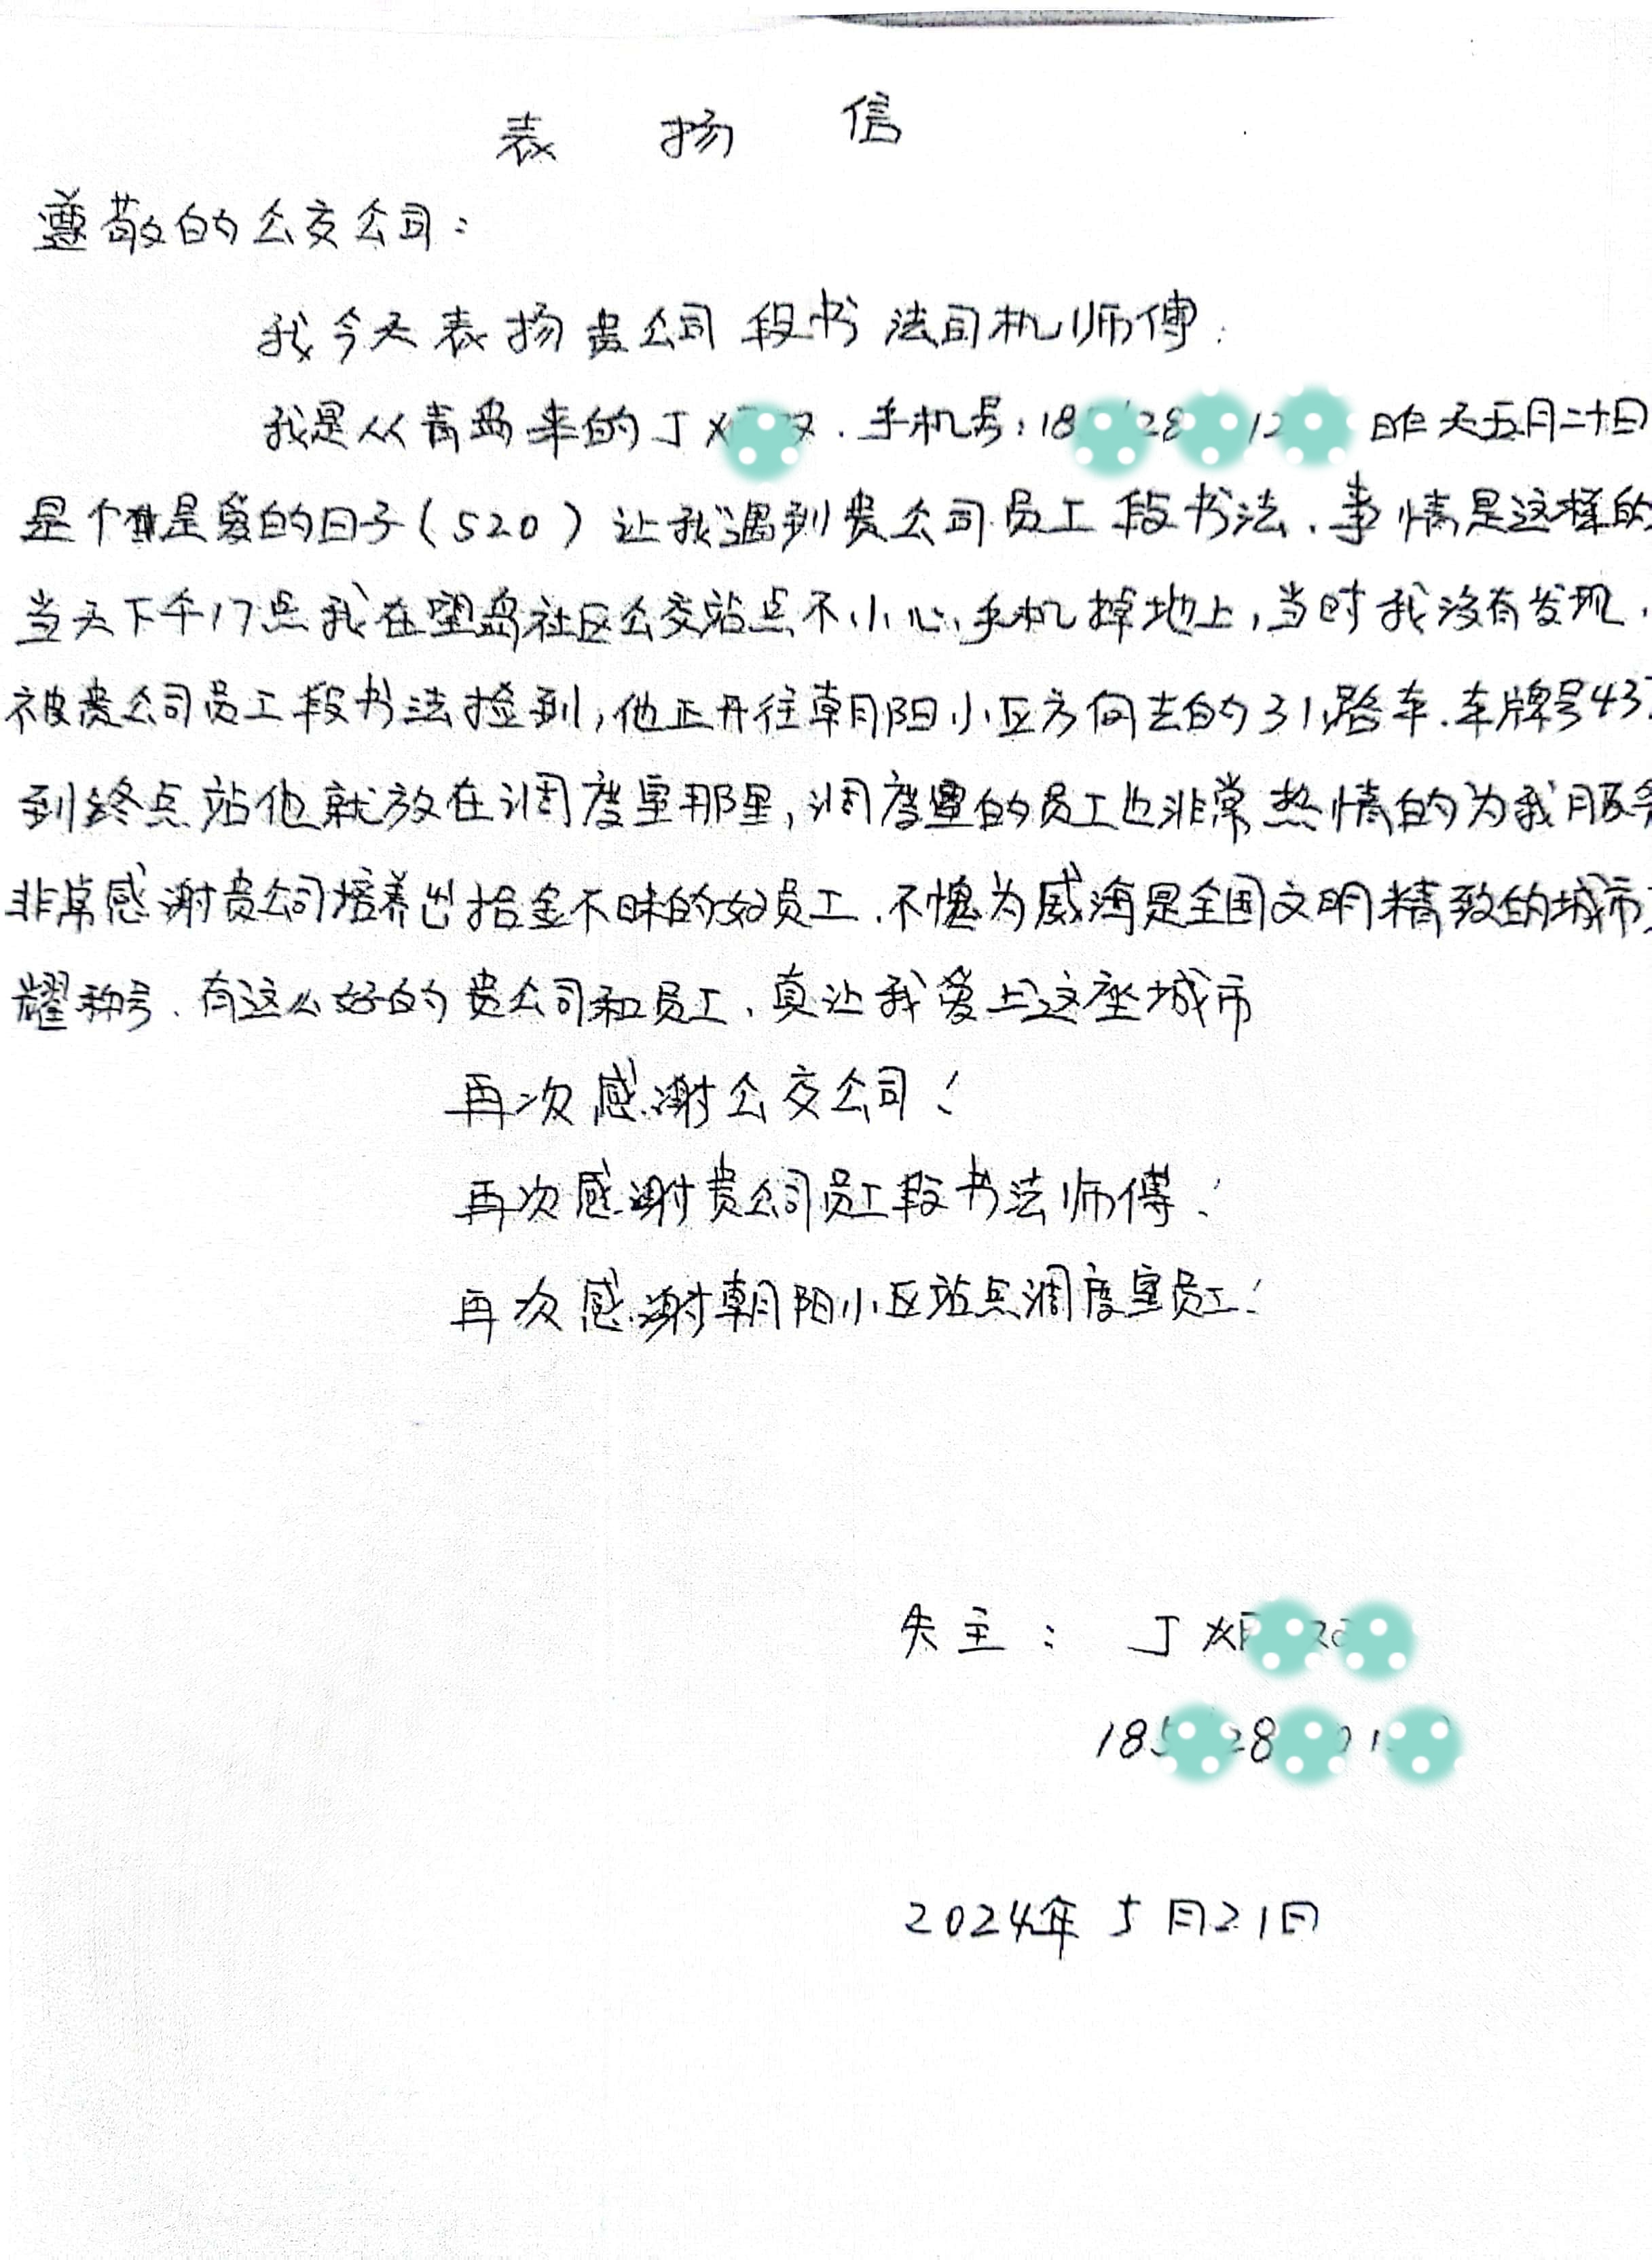 表扬信
尊敬的公交公司：
我今天表扬贵公司段书法司机师傅：
我是从青岛来的丁 手机号：18 28 12 昨天五月二十日
是个 是爱的日子（520）让我遇到贵公司员工段书法．事情是这样的
当天下午17点我在望岛社区公交站点不小心手机掉地上，当时我没有发现．
被贵公司员工段书法捡到，他正开往朝阳小区方向去的31路车．车牌号43
到终点站他就放在调度室那里，调度室的员工也非常热情的为我服务
非常感谢贵公司培养出拾金不昧的好员工．不愧为威海是全国文明精致的城市
耀称号．有这么好的贵公司和员工、真让我爱上这座城市
再次感谢公交公司！
再次感谢贵公司员工段书法师傅！
再次感谢朝阳小区站点调度室员工！
失主： 丁
185 28 01
2024年5月21日